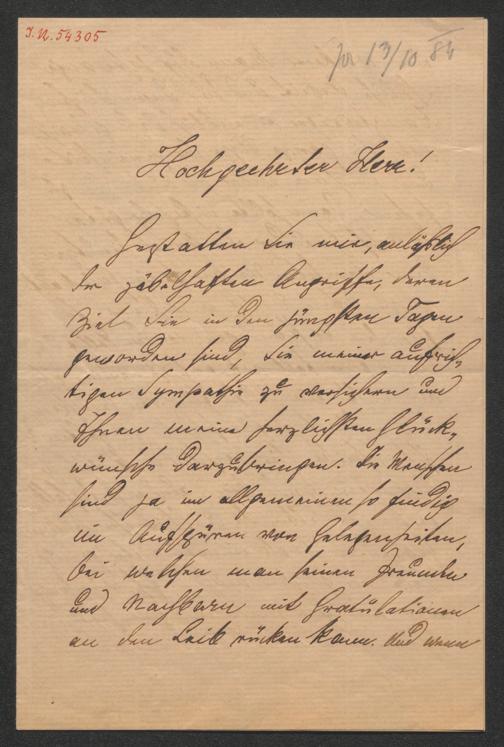 I.N. 54305
pr 13/10 84
Hochgeehrter Herr!
Gestatten Sie mir, anläßlich
der pöbelhaften Angriffe, deren
Ziel Sie in den jüngsten Tagen
geworden sind, Sie meiner aufrich-
tigen Sympathie zu versichern und
Ihnen meine herzlichsten Glück-
wünsche darzubringen. Die Menschen
sind ja im allgemeinen so findig
im Aufspüren von Gelegenheiten,
bei welchen man seinen Freunden
und Nachbarn mit Gratulationen
an den Leib rücken kann. Und wenn